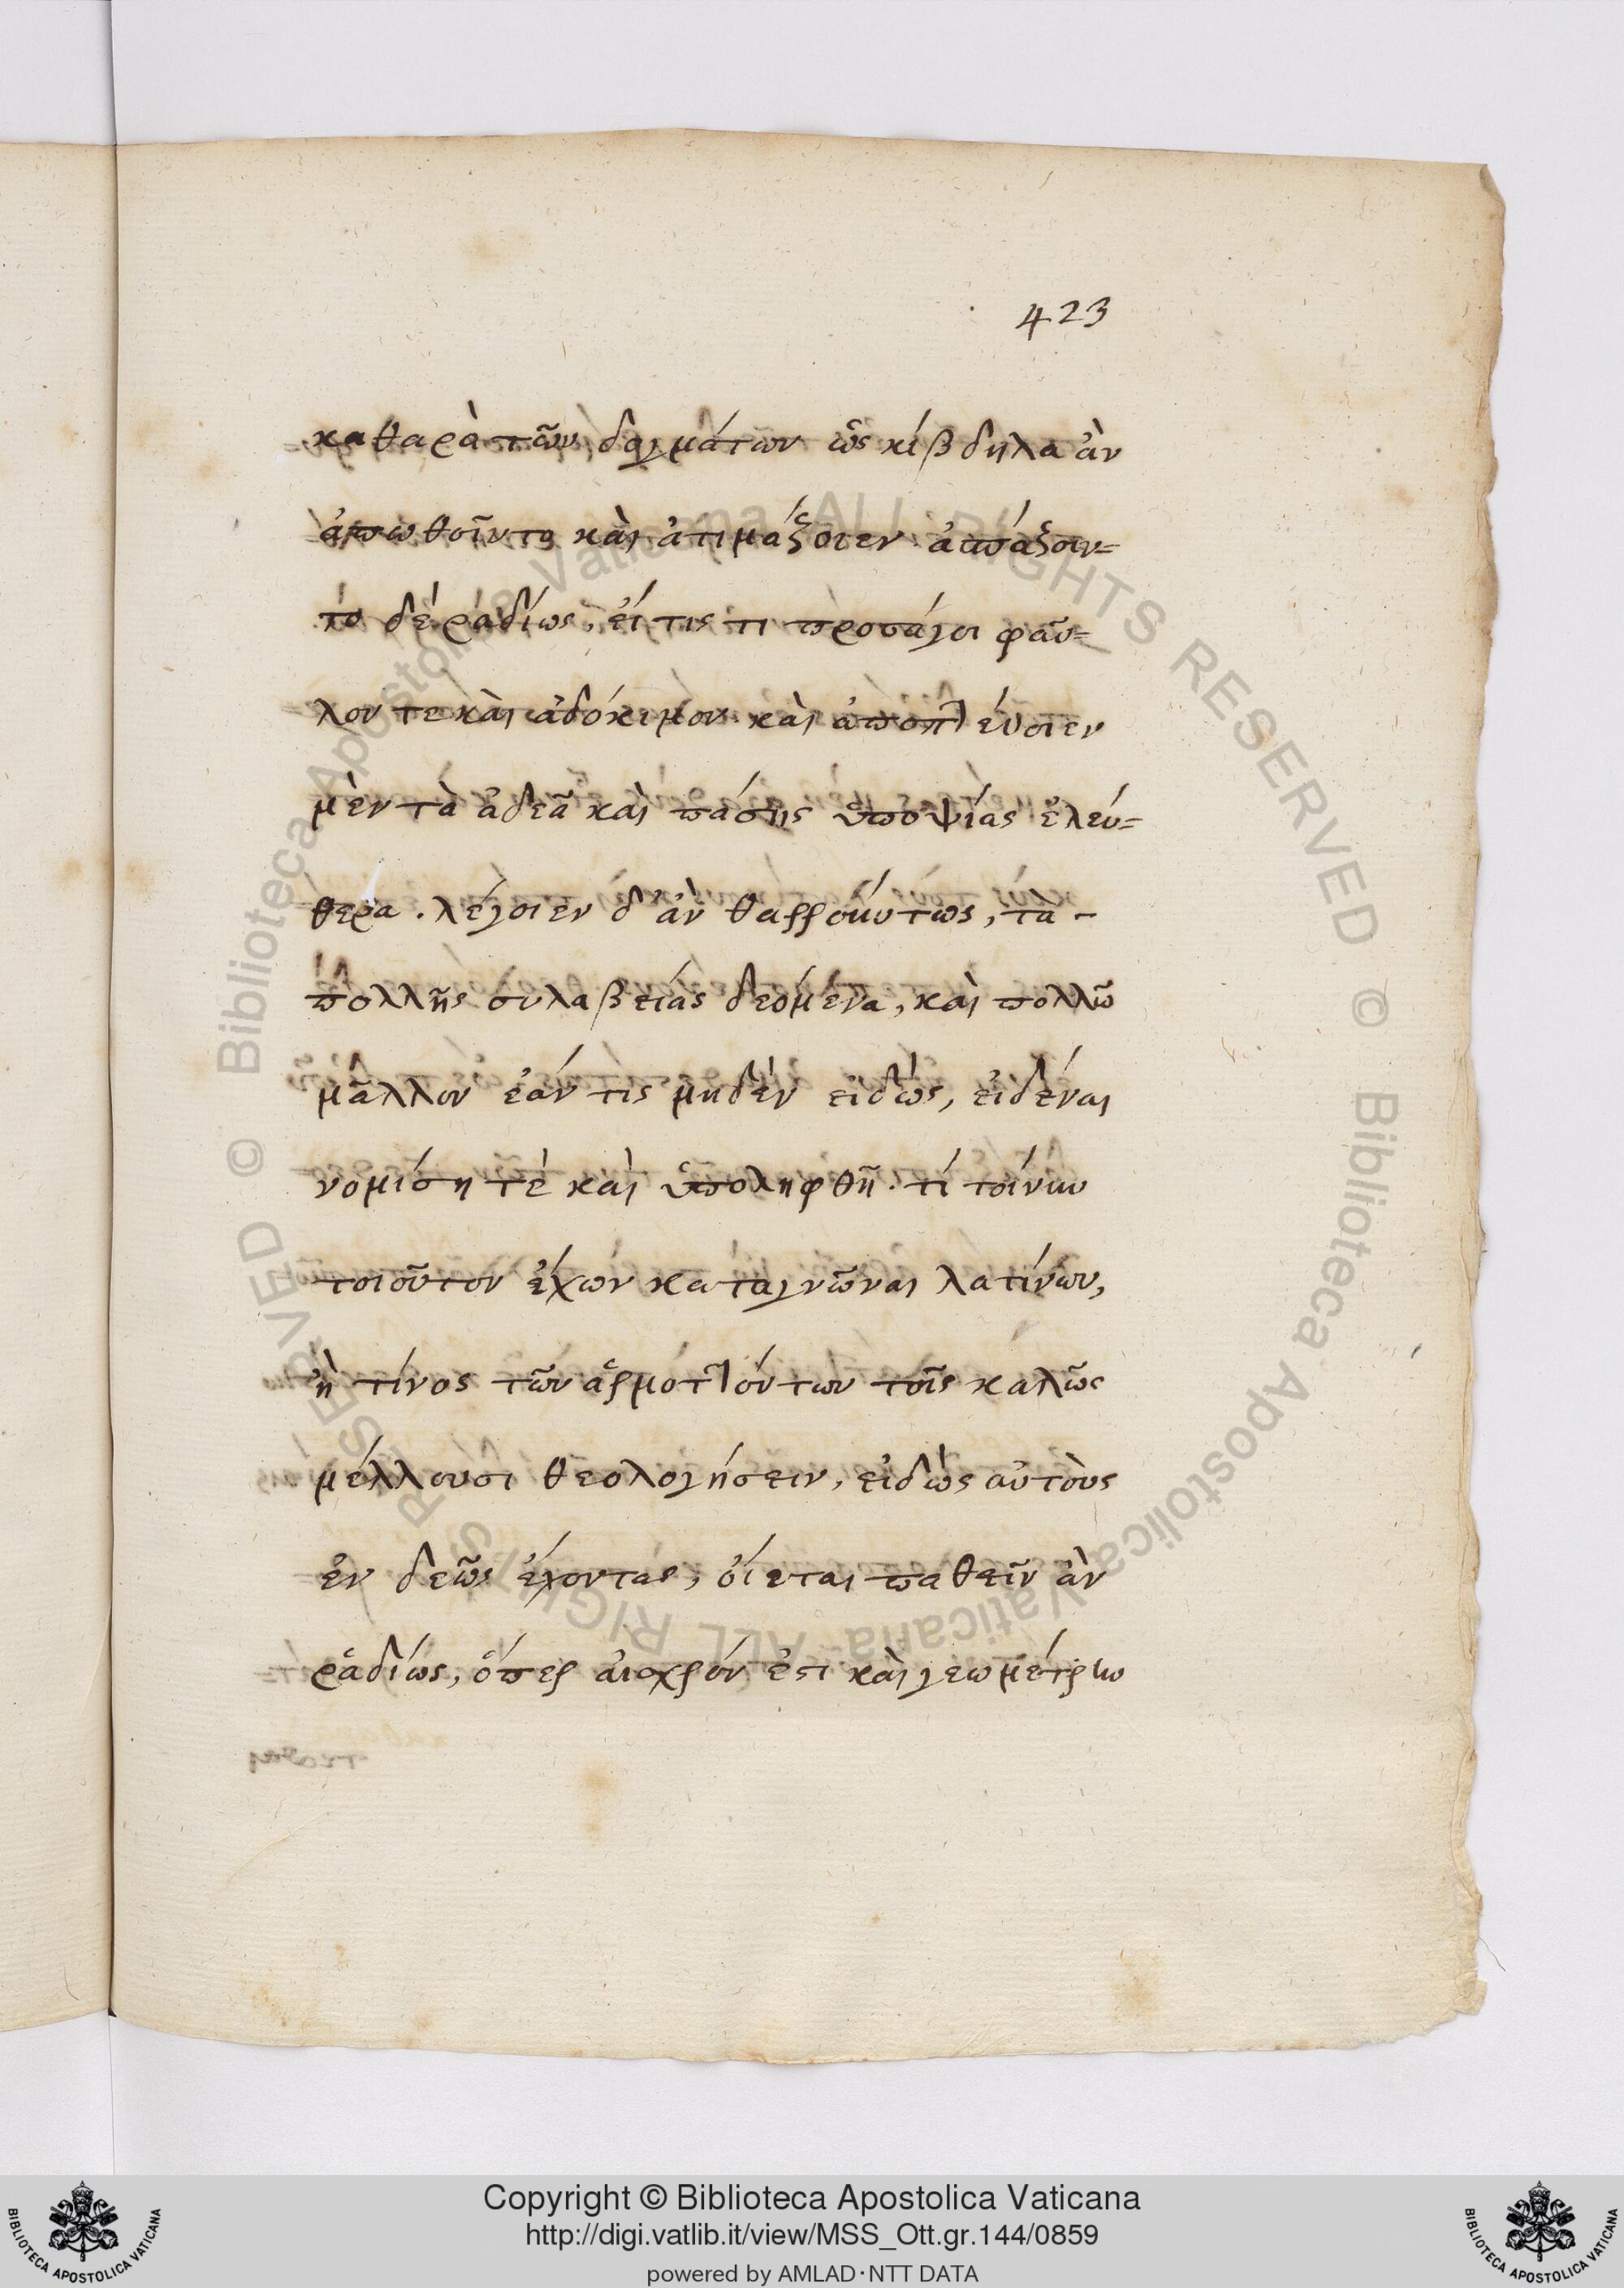 423
καθαρὰ τῶν δογμάτων ὡς κίβδηλα ἂν
ἀπωθοῖντο καὶ ἀτιμάζοιεν· ἀπάξοιν=
το δὲ ῥᾳδίως, εἴ τις τι προσάγοι φαῦ=
λον τε καὶ ἀδόκιμον· καὶ ἀποπτεύοιεν
μὲν τὰ ἀδεᾶ καὶ πάσης ὑποψίας ἐλεύ=
θερα. λέγοιεν δ' ἂν θαρρούντως, τὰ -
πολλῆς συλαβείας δεόμενα, καὶ πολλῶ
μᾶλλον ἐάν τις μηδὲν εἰδὼς, εἰδέναι
νομίση τὲ καὶ ὑποληφθῆ· τί τοίνυν
τοιοῦτον ἔχων καταγνῶναι λατίνων,
ἢ τίνος τῶν ἁρμοττόντων τοῖς καλῶς
μέλλουσι θεολογήσειν, εἰδὼς αὐτοὺς
ἐν δεῶς ἔχοντας, οἴεται παθεῖν ἂν
ῥᾳδίως, ὅπερ αἰσχρόν ἐστι καὶ γεωμέτρην
Copyright © Biblioteca Apostolica Vaticana
http://digi.vatlib.it/view/MSS_Ott.gr.144/0859
powered by AMLAD·NTT DATA
BIBLIOTECA APOSTOLICA VATICANA
BIBLIOTECA APOSTOLICA VATICANA
© Biblioteca Apostolica Vaticana ALL RIGHTS RESERVED © Biblioteca Apostolica Vaticana ALL RIGHTS RESERVED